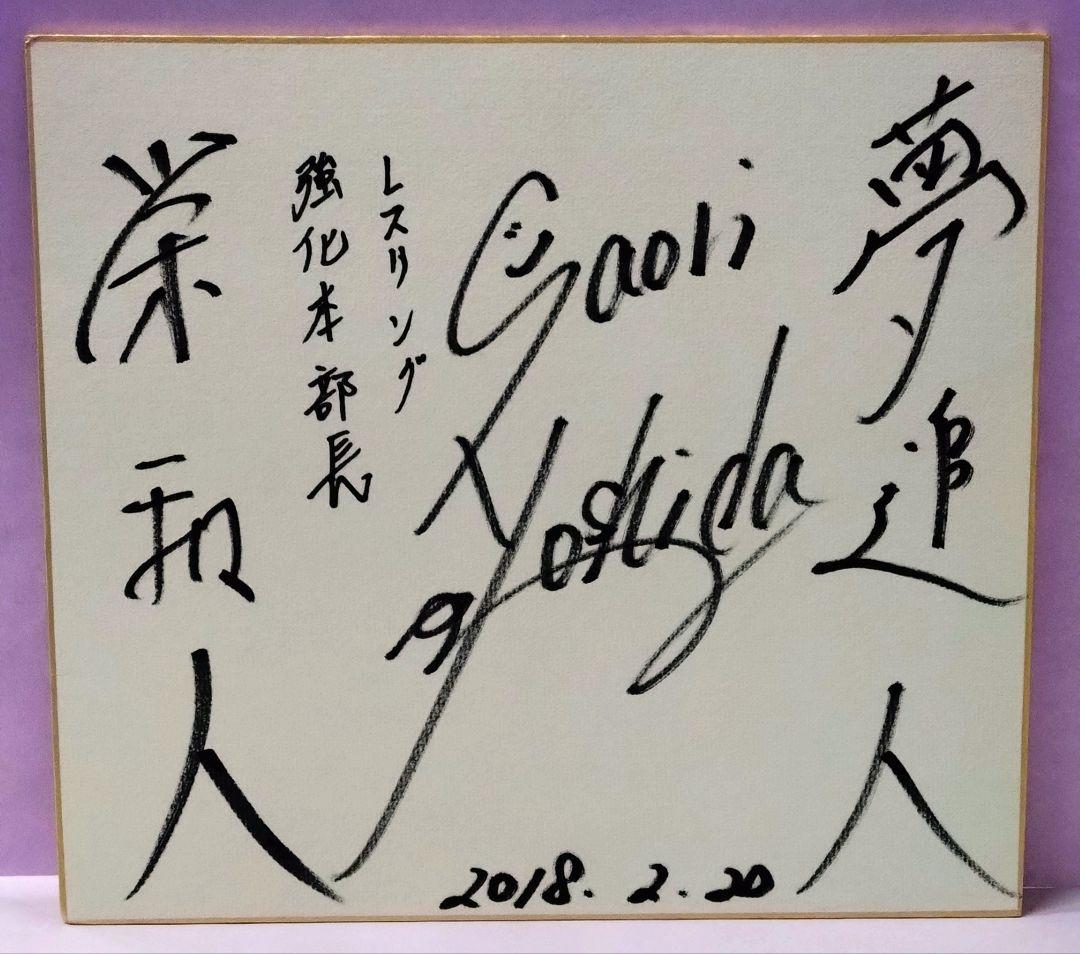 夢追人
Saori
Yoshida
レスリング
強化本部長
栄和人
2018.2.20